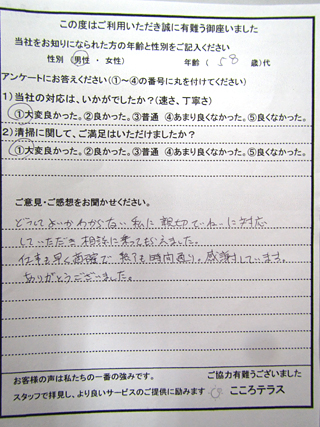 この度はご利用いただき誠に有難う御座いました
当社をお知りになられた方の年齢と性別をご記入ください
性別 (男性・女性) 年齢 (58 歳)代
アンケートにお答えください(①～④の番号に丸を付けてください)
1)当社の対応は、いかがでしたか?(速さ、丁寧さ)
①大変良かった。②良かった。③普通 ④あまり良くなかった。⑤良くなかった。
2)清掃に関して、ご満足はいただけましたか?
①大変良かった。②良かった。③普通 ④あまり良くなかった。⑤良くなかった。
ご意見・ご感想をお聞かせください。
どうしてよいかわからない私に親切ていねいに対応
していただき相談に乗ってもらえました。
仕事も早く正確で 時間通り。感謝しています。
ありがとうございました。
お客様の声は私たちの一番の強みです。
ご協力有難うございました
スタッフで拝見し、より良いサービスのご提供に励みます
こころテラス